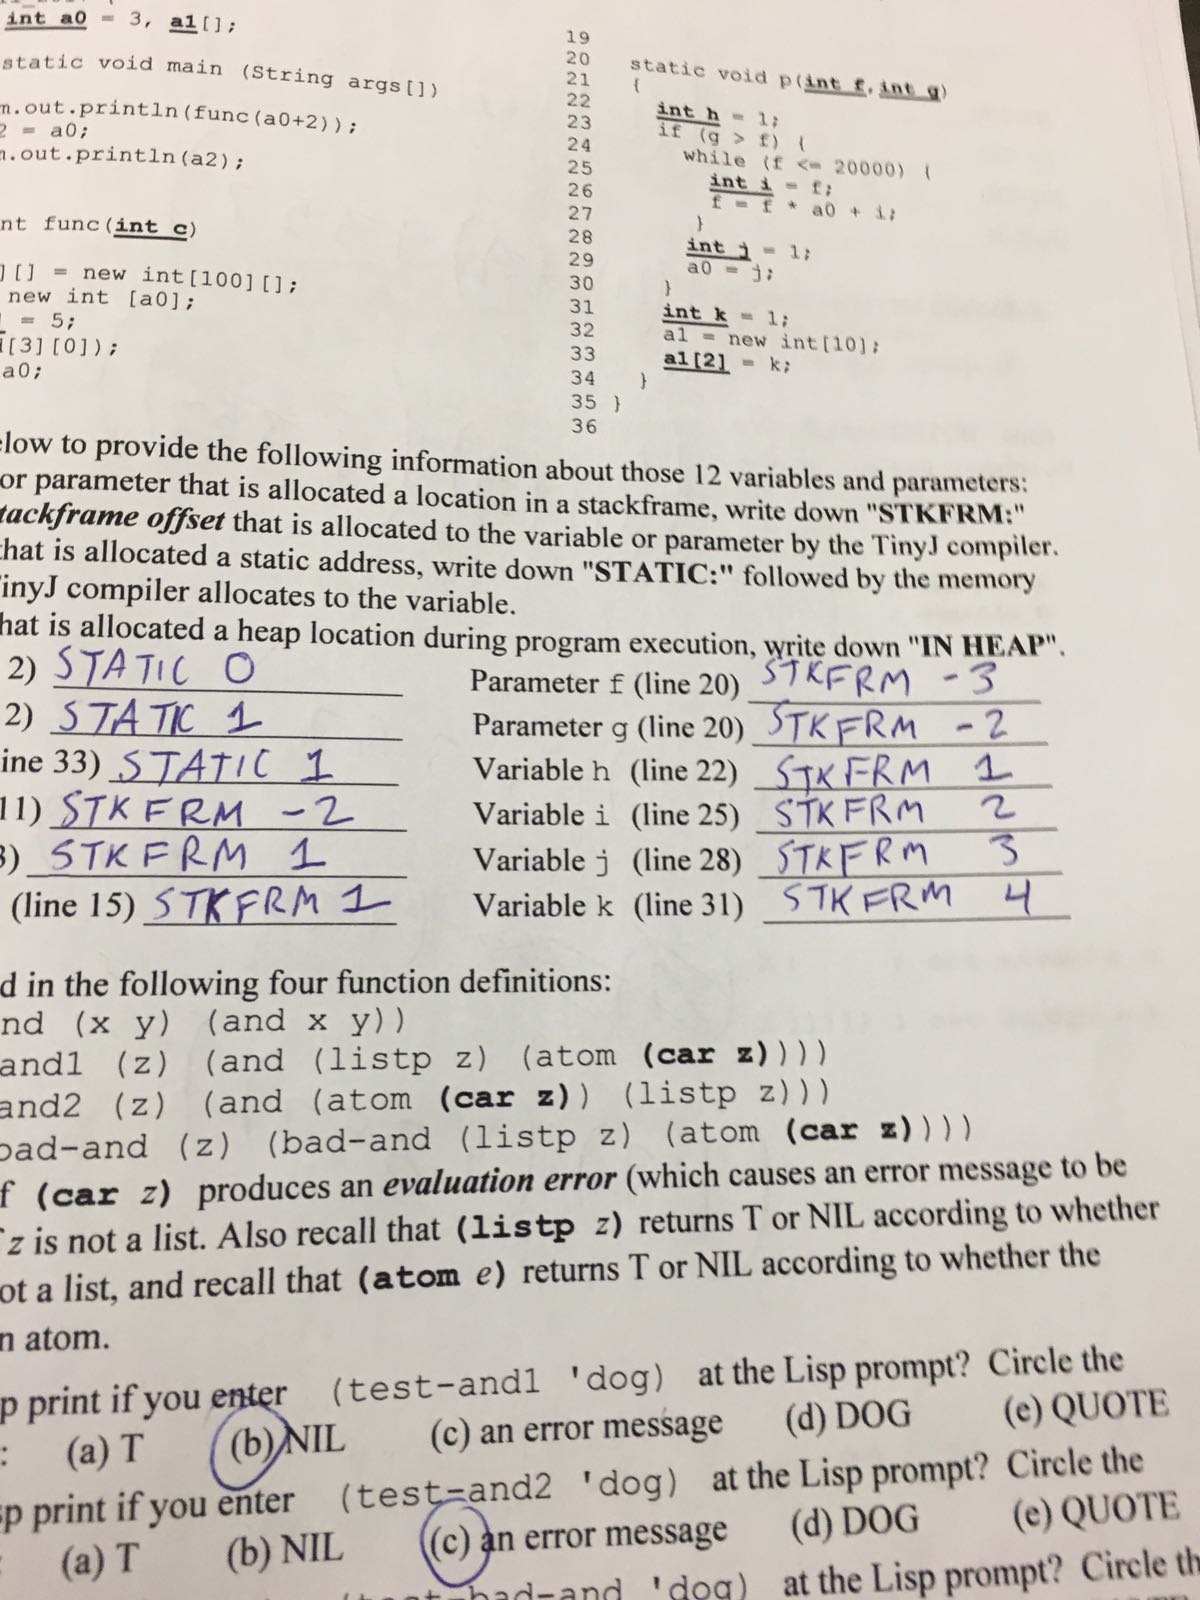 int a0 = 3, a1[];
static void main (String args[])
m.out.println(func(a0+2));
2 = a0;
m.out.println(a2);
nt func(int c)
][] = new int[100][];
new int [a0];
= 5;
i[3][0]);
a0;
19
20 static void p(int f, int g)
21 {
22 int h = 1;
23 if (g > f) {
24 while (f <= 20000) {
25 int i = f;
26 f = f * a0 + i;
27 }
28 int j = 1;
29 a0 = j;
30 }
31 int k = 1;
32 a1 = new int[10];
33 a1[2] = k;
34 }
35 }
36
elow to provide the following information about those 12 variables and parameters:
or parameter that is allocated a location in a stackframe, write down "STKFRM:"
tackframe offset that is allocated to the variable or parameter by the TinyJ compiler.
that is allocated a static address, write down "STATIC:" followed by the memory
inyJ compiler allocates to the variable.
hat is allocated a heap location during program execution, write down "IN HEAP".
2) STATIC 0 Parameter f (line 20) STKFRM -3
2) STATIC 1 Parameter g (line 20) STKFRM -2
ine 33) STATIC 1 Variable h (line 22) STKFRM 1
11) STKFRM -2 Variable i (line 25) STKFRM 2
3) STKFRM 1 Variable j (line 28) STKFRM 3
(line 15) STKFRM 1 Variable k (line 31) STKFRM 4
d in the following four function definitions:
nd (x y) (and x y))
and1 (z) (and (listp z) (atom (car z))))
and2 (z) (and (atom (car z)) (listp z)))
bad-and (z) (bad-and (listp z) (atom (car z))))
f (car z) produces an evaluation error (which causes an error message to be
z is not a list. Also recall that (listp z) returns T or NIL according to whether
ot a list, and recall that (atom e) returns T or NIL according to whether the
n atom.
p print if you enter (test-and1 'dog) at the Lisp prompt? Circle the
: (a) T (b) NIL (c) an error message (d) DOG (e) QUOTE
sp print if you enter (test-and2 'dog) at the Lisp prompt? Circle the
: (a) T (b) NIL (c) an error message (d) DOG (e) QUOTE
(test-bad-and 'dog) at the Lisp prompt? Circle th